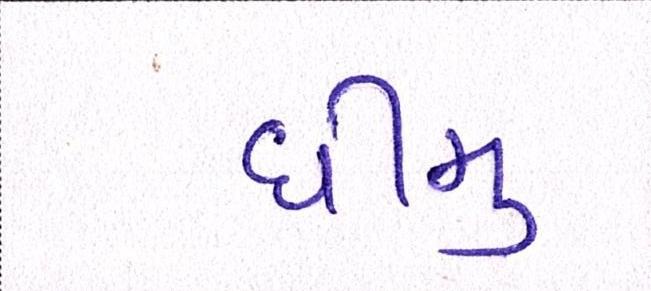 ધીમુ